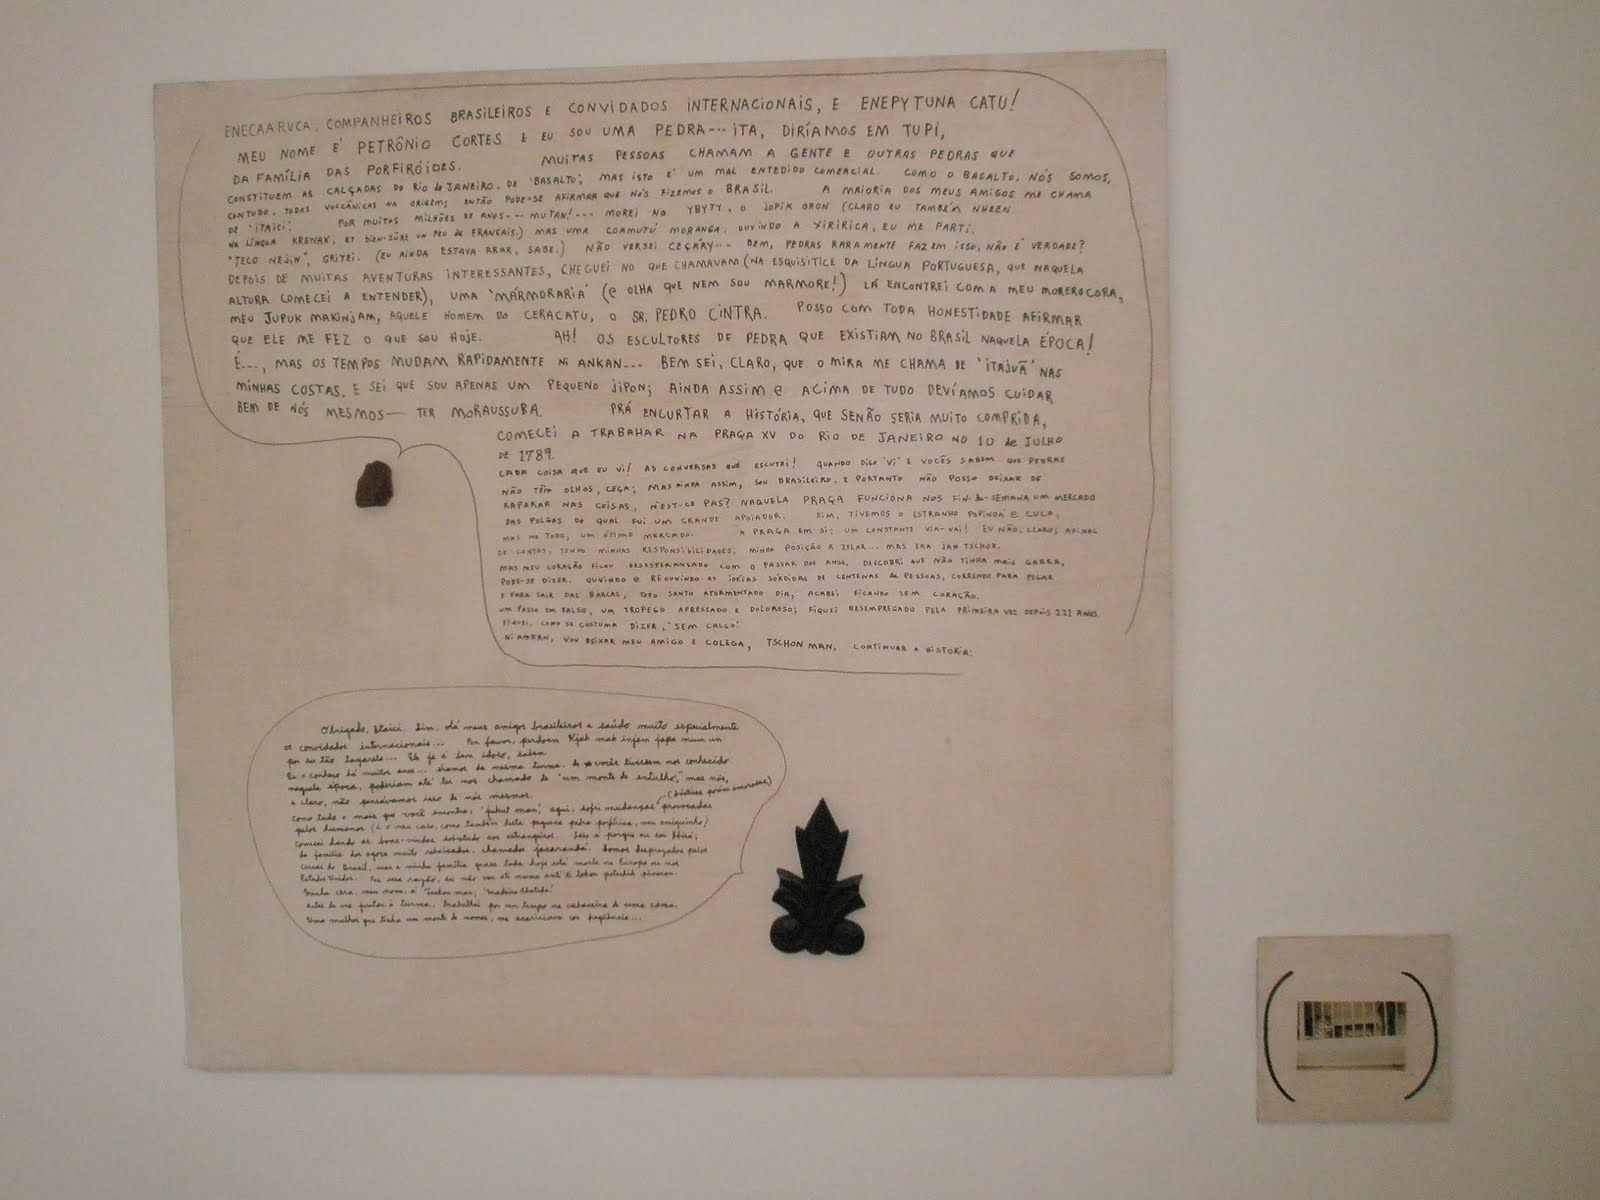 ENECAARUCA, COMPANHEIROS BRASILEIROS E CONVIDADOS INTERNACIONAIS, E ENEPYTUNA CATU!
MEU NOME É PETRÔNIO CORTES E EU SOU UMA PEDRA --- ITA, DIRÍAMOS EM TUPI,
DA FAMÍLIA DAS PORFIRÓIDES. MUITAS PESSOAS CHAMAM A GENTE E OUTRAS PEDRAS QUE
CONSTITUEM AS CALÇADAS DO RIO de JANEIRO, DE 'BASALTO', MAS ISTO É UM MAL ENTEDIDO COMERCIAL. COMO O BASALTO, NÓS SOMOS,
CONTUDO, TODAS VULCÂNICAS NA ORIGEM; ENTÃO PODE-SE AFIRMAR QUE NÓS FIZEMOS O BRASIL. A MAIORIA DOS MEUS AMIGOS ME CHAMA
DE 'ITAICI'. POR MUITOS MILHÕES DE ANOS --- MUTAN! --- MOREI NO YBYTY, O JOPIK ORON (CLARO EU TAMBÉM NHEEN
NA LÍNGUA KRENAK, ET BIEN-SÛRE UN PEU DE FRANÇAIS.) MAS UMA COAMUTÚ MORANGA, OUVINDO A XIRIRICA, EU ME PARTI.
"TECO NEJIN", GRITEI. (EU AINDA ESTAVA RRAR, SABE.) NÃO VERSEI CEÇARY --- BEM, PEDRAS RARAMENTE FAZEM ISSO, NÃO É VERDADE?
DEPOIS DE MUITAS AVENTURAS INTERESSANTES, CHEGUEI NO QUE CHAMAVAM (NA ESQUISITICE DA LÍNGUA PORTUGUESA, QUE NAQUELA
ALTURA COMECEI A ENTENDER), UMA 'MÁRMORARIA' (e OLHA QUE NEM SOU MARMORE!) LÁ ENCONTREI COM A MEU MOREROCORA,
MEU JUPUK MAKINJAM, AQUELE HOMEM DO CERACATU, O SR. PEDRO CINTRA. POSSO COM TODA HONESTIDADE AFIRMAR
QUE ELE ME FEZ O QUE SOU HOJE. AH! OS ESCULTORES DE PEDRA QUE EXISTIAM NO BRASIL NAQUELA ÉPOCA!
É---, MAS OS TEMPOS MUDAM RAPIDAMENTE NI ANKAN--- BEM SEI, CLARO, QUE O MIRA ME CHAMA DE 'ITAJUÃ' NAS
MINHAS COSTAS. E SEI QUE SOU APENAS UM PEQUENO JIPON; AINDA ASSIM e ACIMA DE TUDO DEVÍAMOS CUIDAR
BEM DE NÓS MESMOS — TER MORAUSSUBA. PRÁ ENCURTAR A HISTÓRIA, QUE SENÃO SERIA MUITO COMPRIDA,
COMECEI A TRABAHAR NA PRAÇA XV DO RIO DE JANEIRO NO 10 de JULHO
DE 1789.
CADA COISA QUE EU VI! AS CONVERSAS QUE ESCUTEI! QUANDO DIGO 'VI' E VOCÊS SABEM QUE PEDRAS
NÃO TÊM OLHOS, CEÇA; MAS AINDA ASSIM, SOU BRASILEIRO, E PORTANTO NÃO POSSO DEIXAR DE
RAPARAR NAS COISAS, N'EST-CE PAS? NAQUELA PRAÇA FUNCIONA NOS FIN-de-SEMANA UM MERCADO
DAS PULGAS DO QUAL FUI UM GRANDE APOIADOR. SIM, TIVEMOS O ESTRANHO POPINDA e CUCA,
MAS NO TODO, UM ÓTIMO MERCADO. A PRAÇA EM SI: UM CONSTANTE VIA-VAI! EU NÃO, CLARO; AFINAL
DE CONTAS, TENHO MINHAS RESPONSIBILIDADES, MINHA POSIÇÃO A ZELAR... MAS ERA JAH TSCHOK.
MAS MEU CORAÇÃO FICOU DESESPERANÇADO COM O PASSAR DOS ANOS, DESCOBRI QUE NÃO TINHA MAIS GARRA,
PODE-SE DIZER. OUVINDO e REOUVINDO AS IDÉIAS SÓRDIDAS DE CENTENAS de PESSOAS, CORRENDO PARA PEGAR
E PARA SAIR DAS BARCAS, TODO SANTO ATORMENTADO DIA, ACABEI FICANDO SEM CORAÇÃO.
UM PASSO EM FALSO, UM TROPEÇO APRESSADO E DOLOROSO; FIQUEI DESEMPREGADO PELA PRIMEIRA VEZ DEPOIS 221 ANOS.
FIQUEI, COMO SE COSTUMA DIZER, 'SEM CALÇO'.
NI AMKAN, VOU DEIXAR MEU AMIGO E COLEGA, TSCHON MAN, CONTINUAR A HISTORIA:
Obrigado, Itaici. Sim, olá meus amigos brasileiros e saúdo muito especialmente
os convidados internacionais... Por favor, perdoem Kjak mak injem
por ser tão tagarela... Ele já é bem idoso, sabem.
Eu o conheço há muitos anos... éramos da mesma turma. Se vocês tivessem nos conhecido
naquela época, poderiam até ter nos chamado de "um monte de entulho," mas nós,
é claro, não pensávamos isso de nós mesmos. (drásticas porém amorosas)
como tudo o mais que você encontra, aqui, sofri mudanças provocadas
pelos humanos (é o meu caso, como também desta pequena pedra porfírica, meu amiguinho)
comecei dando as boas-vindas sobretudo aos estrangeiros. Isso é porque eu sou
da família dos agora muito rebaixados, chamados jacarandá. Somos desprezados pelos
do Brasil, mas a minha família quase toda hoje está morta na Europa ou nos
Estados Unidos. Por essa razão, eu não vou
Minha cara, meu nome, é Tschon man; 'Madeira Abatida'.
Antes de me juntar à turma, trabalhei por um tempo na cabeceira de uma cama.
Uma mulher que tinha um monte de nomes, me acariciava con freqüência...